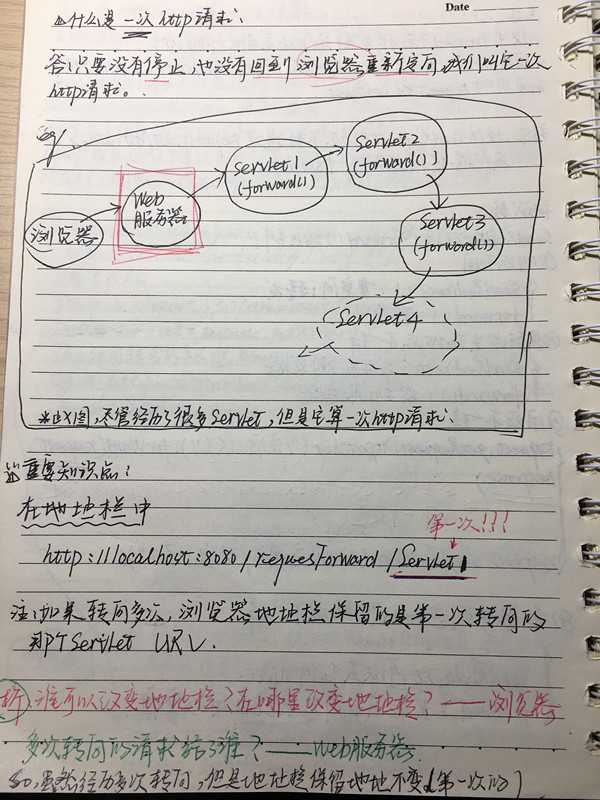 Date
什么是一次http请求.
答:只要没有停止,也没有回到浏览器重新定向,我们叫它一次
http请求。
eg/
浏览器
Web
服务器
Servlet1
(forward())
Servlet2
(forward())
Servlet3
(forward())
Servlet4
*此图,尽管经历了很多Servlet,但是它算一次http请求.
重要知识点:
在地址栏中
第一次!!!
http://localhost:8080/requesForward/Servlet1
注:如果转向多次,浏览器地址栏保留的是第一次转向的
那个Servlet URL.
析:谁可以改变地址栏?在哪里改变地址栏?——浏览器
多次转向的请求给了谁?——Web服务器
So,虽然经历多次转向,但是地址栏保留地址不变(第一次的)